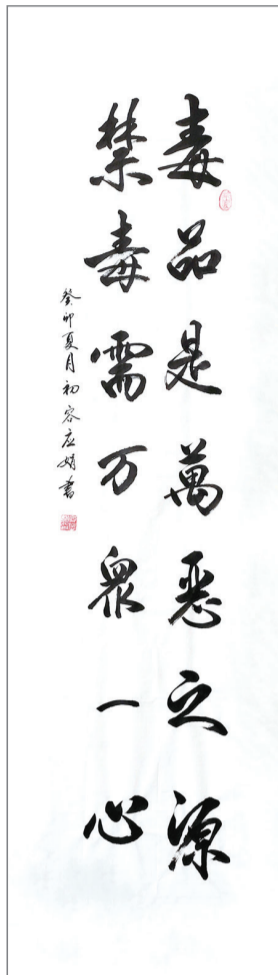 毒品是萬恶之源
禁毒需万衆一心
癸卯夏月初容应婧書